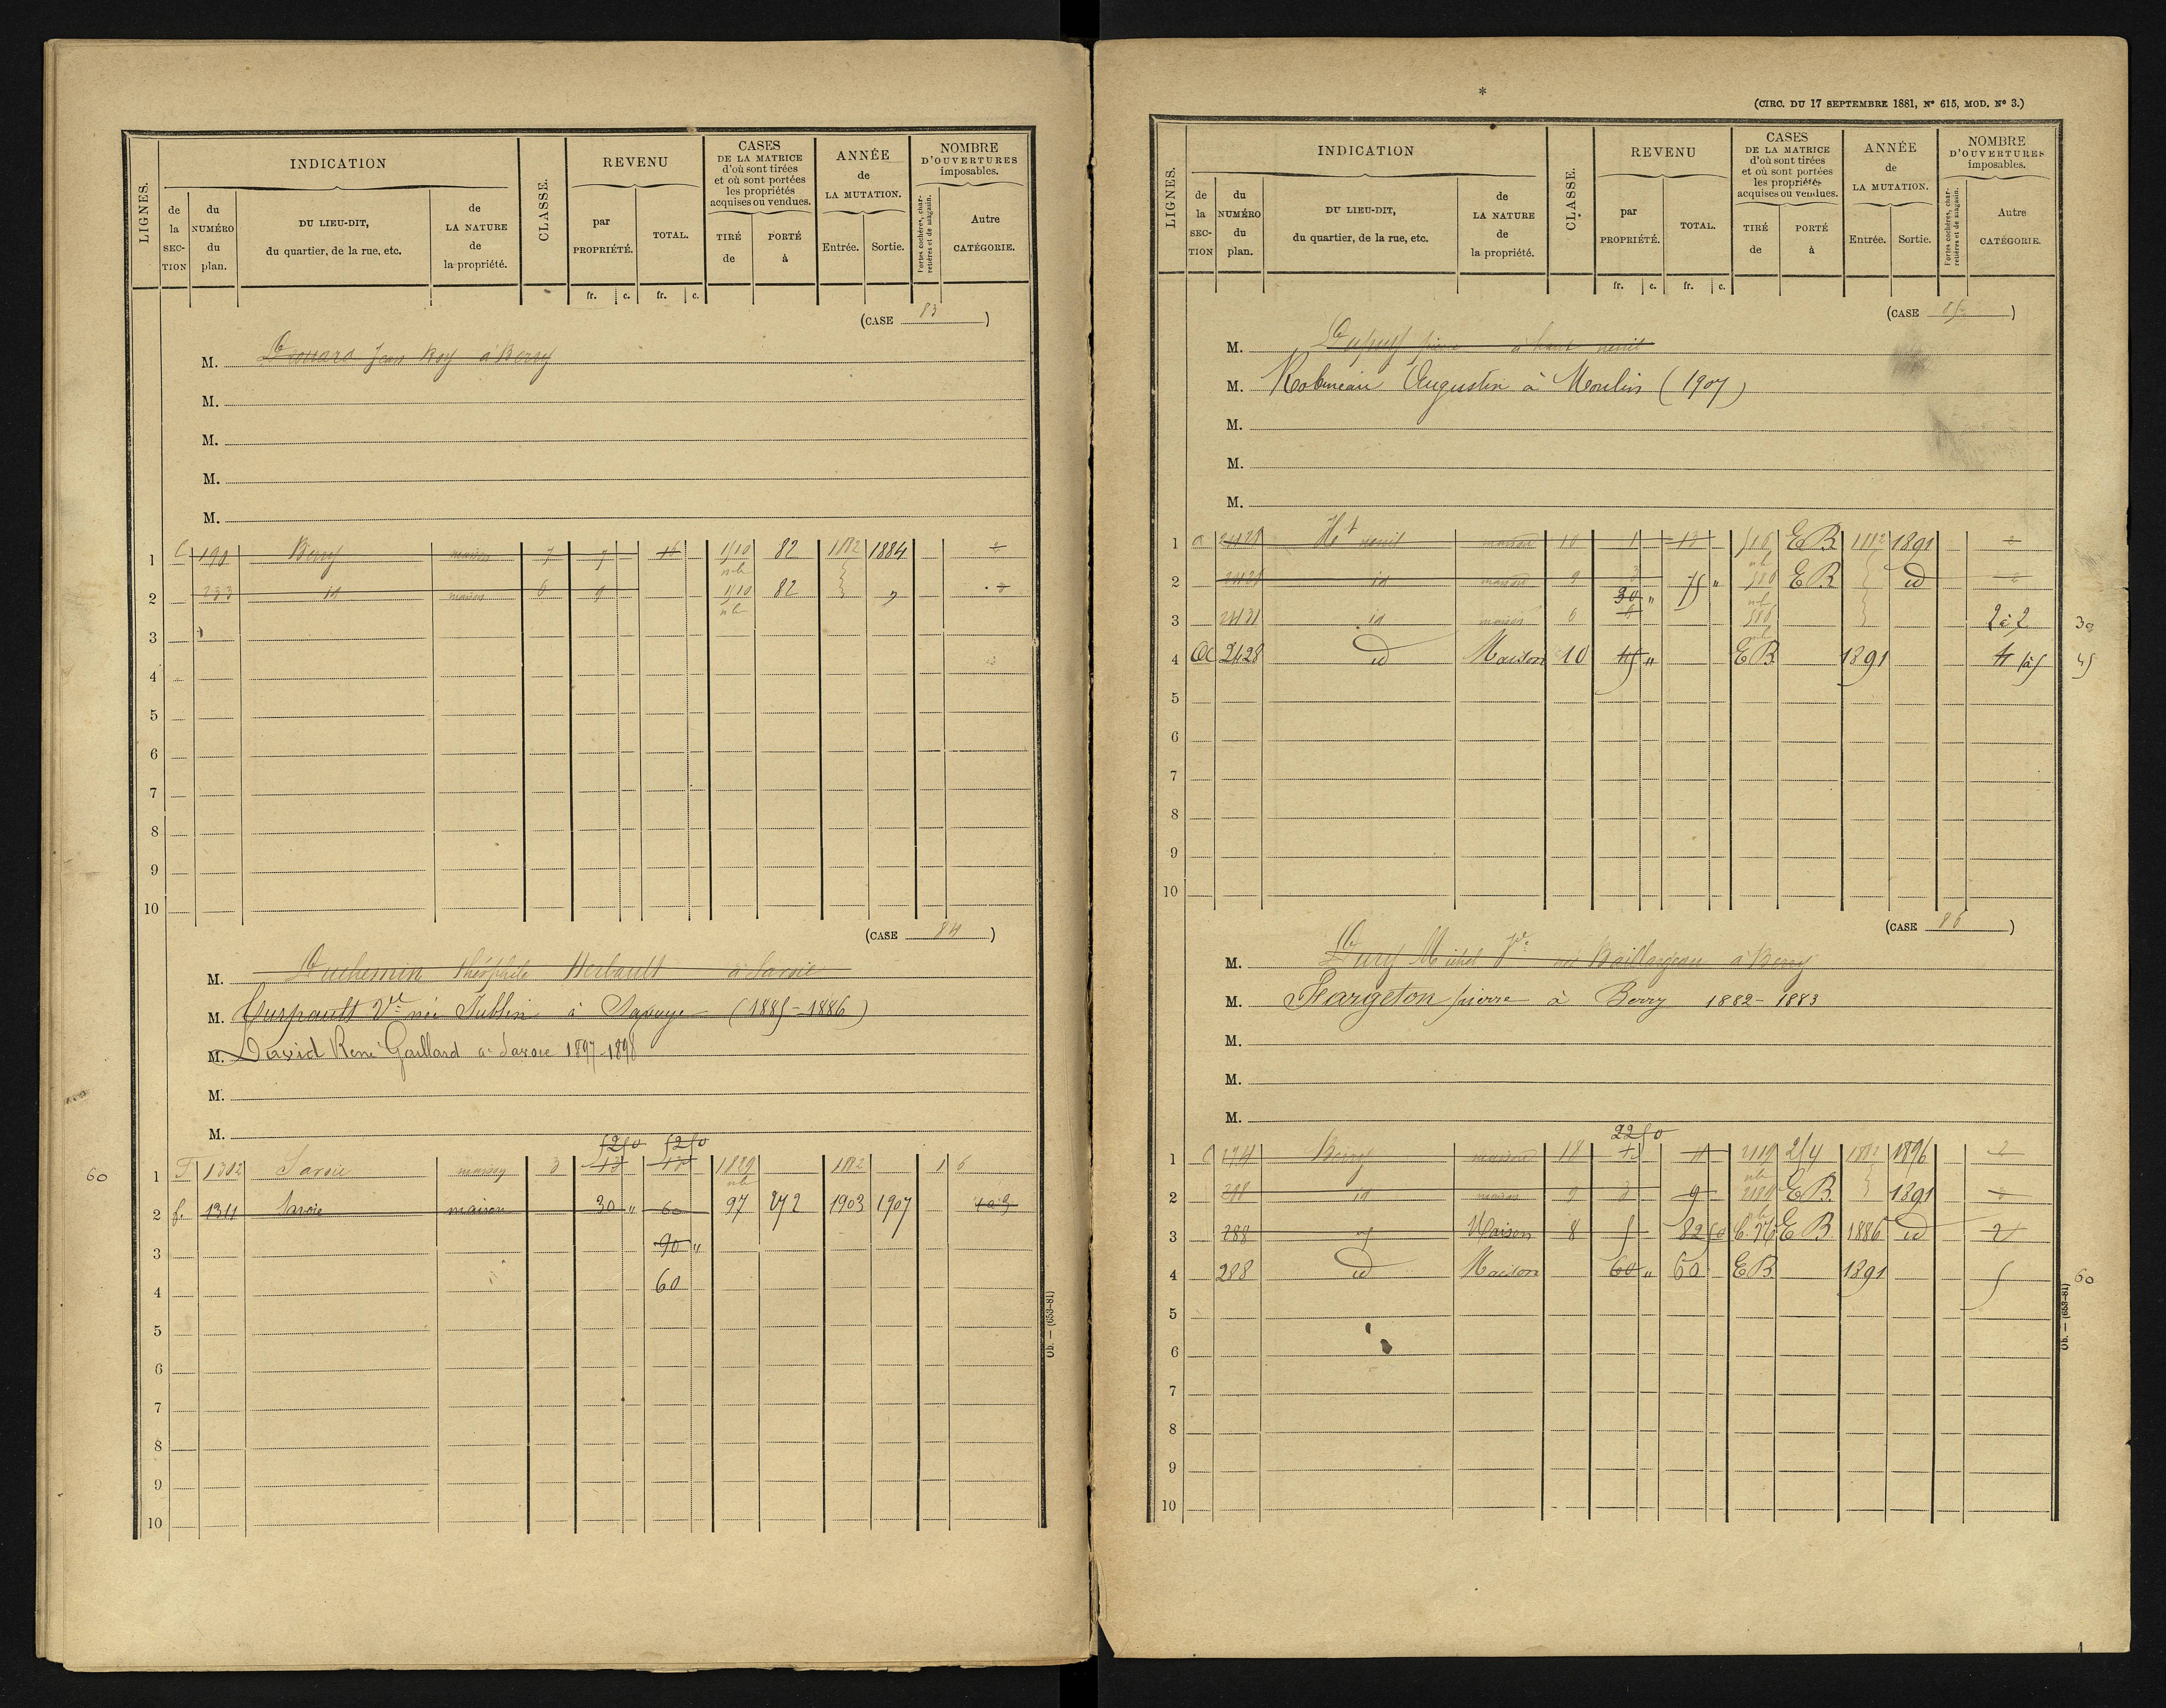 LIGNES.
INDICATION
de la SECTION
du NUMÉRO du plan.
DU LIEU-DIT, du quartier, de la rue, etc.
de LA NATURE de la propriété.
CLASSE.
REVENU
par PROPRIÉTÉ.
TOTAL.
fr. c. fr. c.
CASES DE LA MATRICE d'où sont tirées et où sont portées les propriétés acquises ou vendues.
TIRÉ de
PORTÉ à
ANNÉE de LA MUTATION.
Entrée. Sortie.
NOMBRE D'OUVERTURES imposables.
Portes cochères, charretières et de magasin.
Autre CATÉGORIE.
(CASE 83)
M. Jean Roy à Berry
M.
M.
M.
M.
1 C 190 Berry maison 7 7 16 1510 82 1882 1884 2
2 233 id maison 6 9 1510 82 " 2
3
4
5
6
7
8
9
10
(CASE 84)
M. Duchemin théophile Herbault à Savoie
M. Vve née Jublin à (1885-1886)
M. David René Gaillard à Savoie 1897-1898
M.
M.
52 50 52 50
60 1 F 1302 Savoie maison 3 13 13 1829 1882 1 6
2 f. 1311 Savoie maison 30 " 60 97 272 1903 1907
3 90 "
4 60
5
6
7
8
9
10
Ob. — (653-81)
*
(CIRC. DU 17 SEPTEMBRE 1881, Nº 615, MOD. Nº 3.)
LIGNES.
INDICATION
de la SECTION
du NUMÉRO du plan.
DU LIEU-DIT, du quartier, de la rue, etc.
de LA NATURE de la propriété.
CLASSE.
REVENU
par PROPRIÉTÉ.
TOTAL.
fr. c. fr. c.
CASES DE LA MATRICE d'où sont tirées et où sont portées les propriétés acquises ou vendues.
TIRÉ de
PORTÉ à
ANNÉE de LA MUTATION.
Entrée. Sortie.
NOMBRE D'OUVERTURES imposables.
Portes cochères, charretières et de magasin.
Autre CATÉGORIE.
(CASE 85)
M. Dupuy pierre à haut neuil
M. Robineau Augustin à Moulin (1907)
M.
M.
M.
1 a Ht neuil maison 10 1 13 EB 1882 1891 2
2 id maison 9 3 75 " EB id 2
30 "
3 2431 id maison 6 2 à 2 30
4 a 2428 id Maison 10 45 " EB 1891 4 à 5 45
5
6
7
8
9
10
(CASE 86)
M. Dury Michel Vve née Baillargeau à Berry
M. Fargeton pierre à Berry 1882-1883
M.
M.
M.
22 50
1 C Berry maison 254 1882 1896 2
2 288 id maison 9 3 9 EB 1891 2
3 288 id Maison 8 5 82 50 EB 1886 id 2
4 288 id Maison 60 " 60 EB 1891 5 60
5
6
7
8
9
10
Ob. — (653-81)